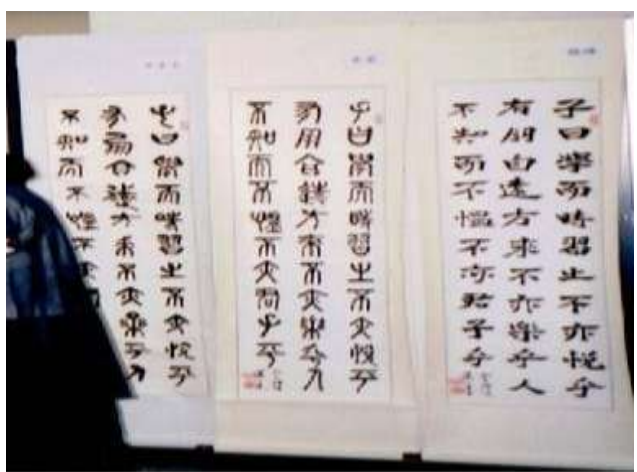 子曰學而時習之不亦悅乎
有朋自遠方來不亦樂乎人
不知而不慍不亦君子乎
子曰學而時習之不亦悅乎
有朋自遠方來不亦樂乎人
不知而不慍不亦君子乎
子曰學而時習之不亦悅乎
有朋自遠方來不亦樂乎人
不知而不慍不亦